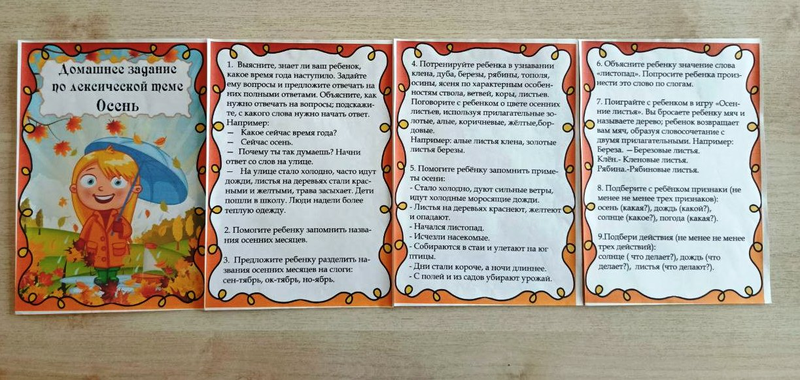 Домашнее задание
по лексической теме
Осень
1. Выясните, знает ли ваш ребенок,
какое время года наступило. Задайте
ему вопросы и предложите отвечать на
них полными ответами. Объясните, как
нужно отвечать на вопросы; подскажи-
те, с какого слова нужно начать ответ.
Например:
— Какое сейчас время года?
— Сейчас осень.
— Почему ты так думаешь? Начни
ответ со слов на улице.
— На улице стало холодно, часто идут
дожди, листья на деревьях стали крас-
ными и желтыми, трава засыхает. Дети
пошли в школу. Люди надели более
теплую одежду.
2. Помогите ребенку запомнить назва-
ния осенних месяцев.
3. Предложите ребенку разделить на-
звания осенних месяцев на слоги:
сен-тябрь, ок-тябрь, но-ябрь.
4. Потренируйте ребенка в узнавании
клена, дуба, березы, рябины, тополя,
осины, ясеня по характерным особен-
ностям ствола, ветвей, коры, листьев.
Поговорите с ребенком о цвете осенних
листьев, используя прилагательные зо-
лотые, алые, коричневые, жёлтые,бор-
довые.
Например: алые листья клена, золотые
листья березы.
5. Помогите ребёнку запомнить приме-
ты осени:
- Стало холодно, дуют сильные ветры,
идут холодные моросящие дожди.
- Листья на деревьях краснеют, желтеют
и опадают.
- Начался листопад.
- Исчезли насекомые.
- Собираются в стаи и улетают на юг
птицы.
- Дни стали короче, а ночи длиннее.
- С полей и из садов убирают урожай.
6. Объясните ребенку значение слова
«листопад». Попросите ребенка произ-
нести это слово по слогам.
7. Поиграйте с ребенком в игру «Осен-
ние листья». Вы бросаете ребенку мяч и
называете дерево; ребенок возвращает
вам мяч, образуя словосочетание с
двумя прилагательными. Например:
Береза. — Березовые листья.
Клён.- Кленовые листья.
Рябина.-Рябиновые листья.
8. Подберите с ребёнком признаки (не
менее не менее трех признаков):
осень (какая?), дождь (какой?),
солнце (какое?), погода (какая?).
9.Подбери действия (не менее не менее
трех действий):
солнце ( что делает?), дождь (что
делает?), листья (что делают?).